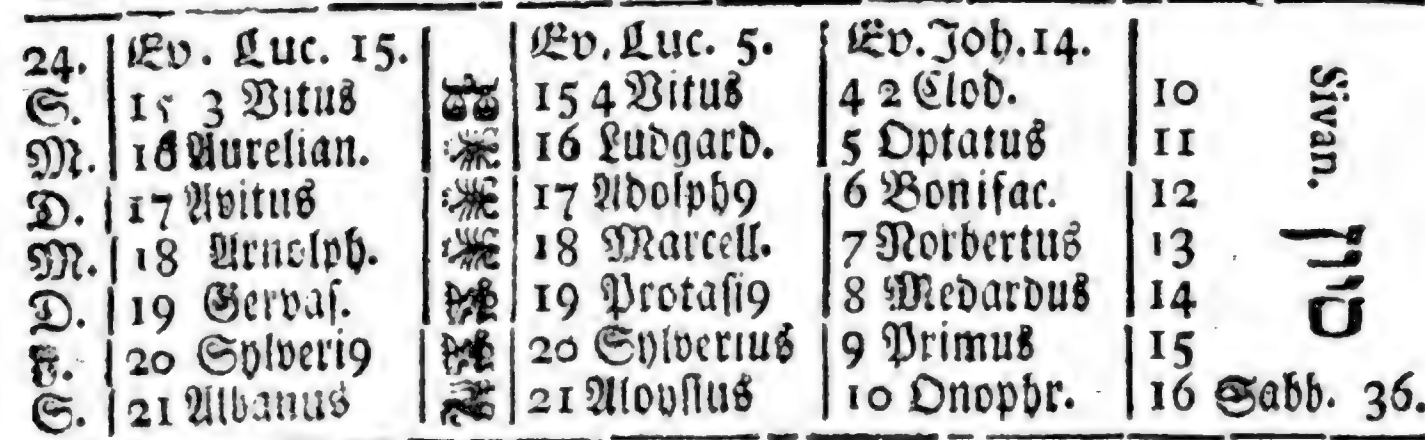 24. Ev. Luc. 15. Ev. Luc. 5. Ev. Joh. 14.
S. 15 3 Vitus 15 4 Vitus 4 2 Clod. 10
M. 16 Aurelian. 16 Ludgard. 5 Optatus 11
D. 17 Avitus 17 Adolph9 6 Bonifac. 12
M. 18 Arnolph. 18 Marcell. 7 Norbertus 13
D. 19 Gervas. 19 Protasi9 8 Medardus 14
F. 20 Sylveri9 20 Sylverius 9 Primus 15
S. 21 Albanus 21 Aloysius 10 Onophr. 16 Sabb. 36.
Sivan. סיון